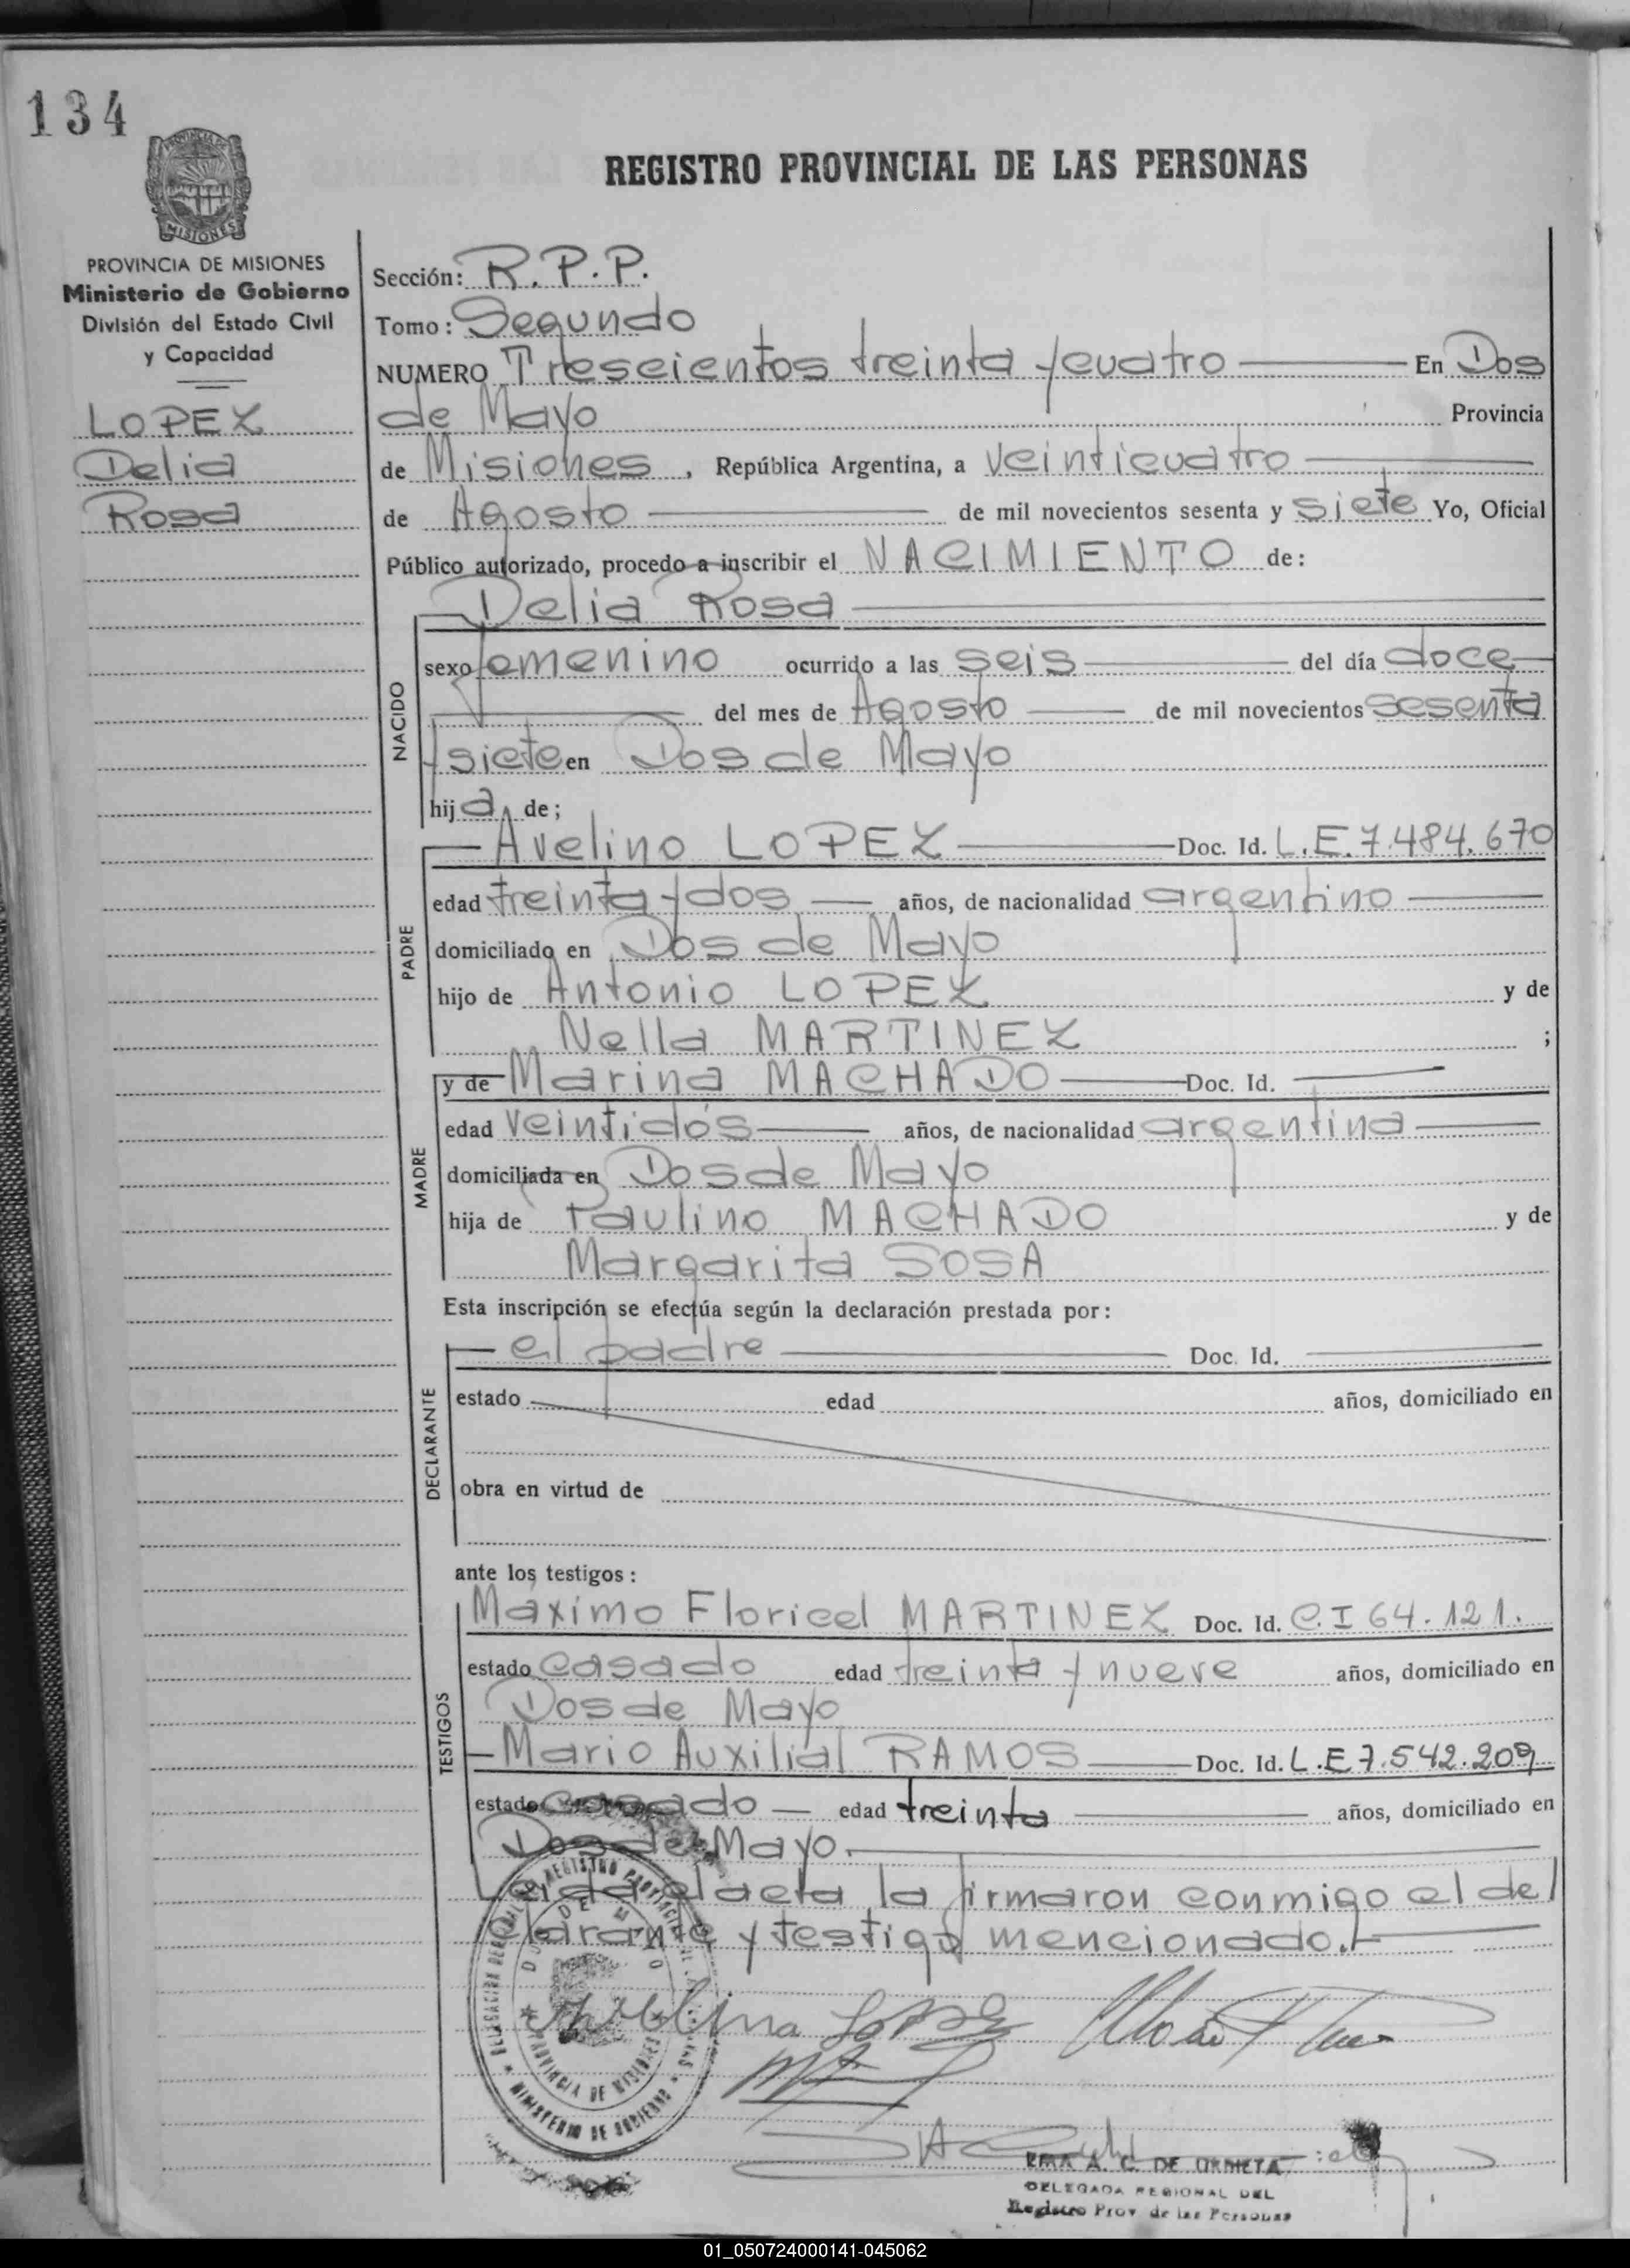 134
MISIONES
REGISTRO PROVINCIAL DE LAS PERSONAS
PROVINCIA DE MISIONES
Ministerio de Gobierno
División del Estado Civil
y Capacidad
LOPEZ
Delia
Rosa
Sección: R.P.P.
Tomo: Segundo
NUMERO Trescientos treinta y cuatro En Dos
de Mayo Provincia
de Misiones, República Argentina, a veinticuatro
de Agosto de mil novecientos sesenta y siete Yo, Oficial
Público autorizado, procedo a inscribir el NACIMIENTO de:
Delia Rosa
NACIDO
sexo femenino ocurrido a las seis del día doce
del mes de Agosto de mil novecientos sesenta
y siete en Dos de Mayo
hija de;
Avelino LOPEZ Doc. Id. L.E.7.484.670
PADRE
edad treinta y dos años, de nacionalidad argentino
domiciliado en Dos de Mayo
hijo de Antonio LOPEZ y de
Nella MARTINEZ ;
y de Marina MACHADO Doc. Id.
MADRE
edad veintidós años, de nacionalidad argentina
domiciliada en Dos de Mayo
hija de Paulino MACHADO y de
Margarita SOSA
Esta inscripción se efectúa según la declaración prestada por:
el padre Doc. Id.
DECLARANTE
estado edad años, domiciliado en
obra en virtud de
ante los testigos:
Maximo Floricel MARTINEZ Doc. Id. C.I 64.121.
TESTIGOS
estado casado edad treinta y nueve años, domiciliado en
Dos de Mayo
Mario Auxilial RAMOS Doc. Id. L.E 7.542.209
estado casado edad treinta años, domiciliado en
Dos de Mayo.
Leida el acta la firmaron conmigo el de
clarante y testigo mencionado.
DOS DE MAYO
PROVINCIA DE MISIONES
MINISTERIO DE GOBIERNO
Avelino Lopez
A. C. DE URRIETA
DELEGADA REGIONAL DEL
Registro Prov de las Personas
01_050724000141-045062